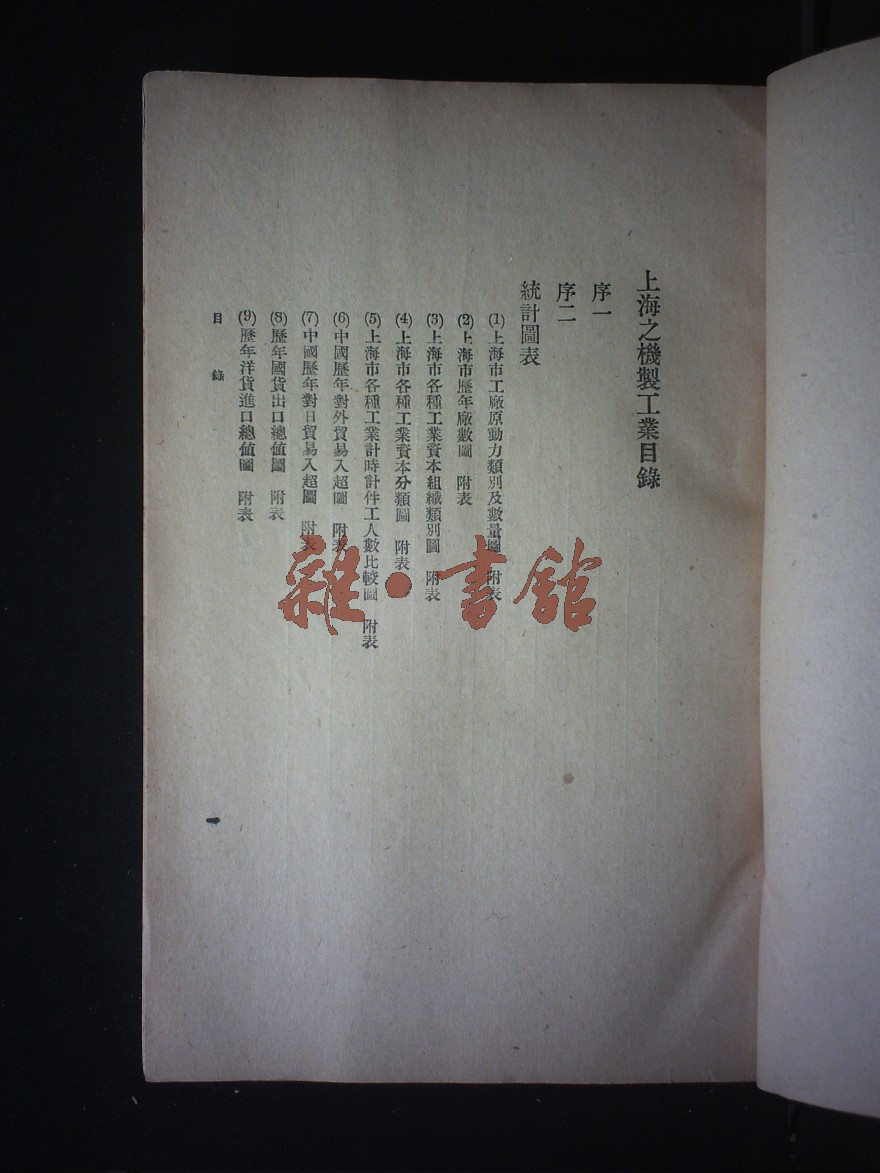 上海之機製工業目錄
序一
序二
統計圖表
(1)上海市工廠原動力類別及數量圖　附表
(2)上海市歷年廠數圖　附表
(3)上海市各種工業資本組織類別圖　附表
(4)上海市各種工業資本分類圖　附表
(5)上海市各種工業計時計件工人數比較圖　附表
(6)中國歷年對外貿易入超圖　附表
(7)中國歷年對日貿易入超圖　附表
(8)歷年國貨出口總值圖　附表
(9)歷年洋貨進口總值圖　附表
目　錄
一
雜·書館